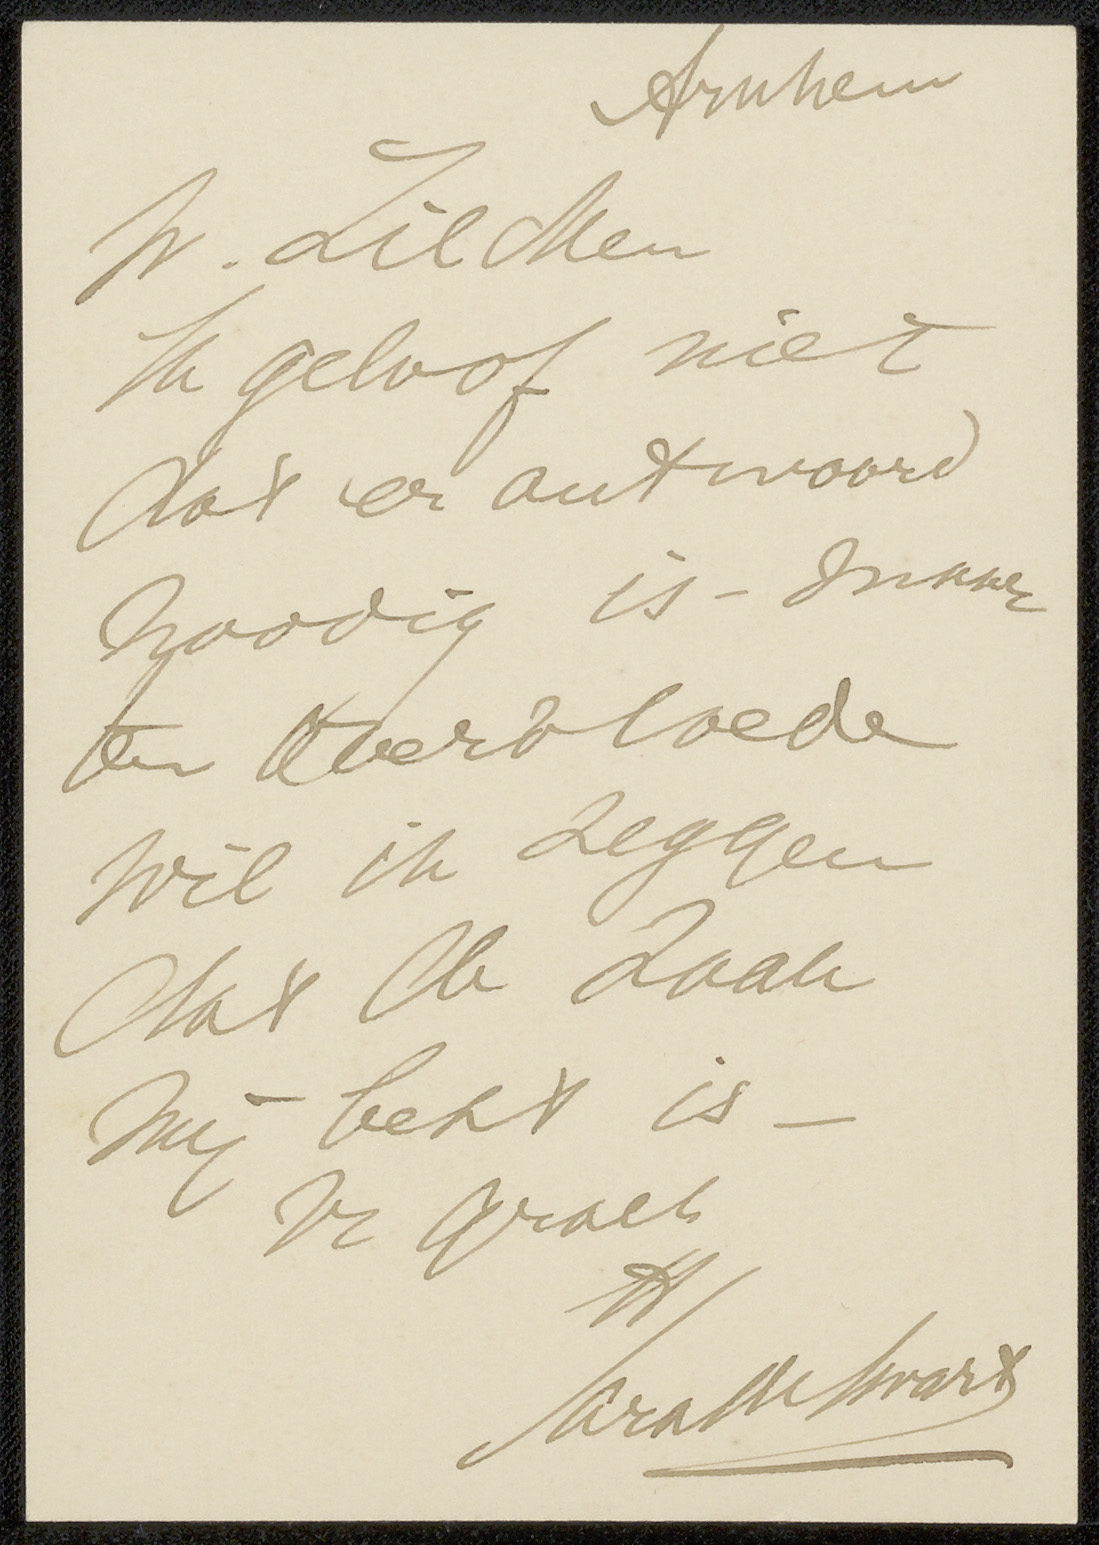 Arnhem
W. Zilcken
Ik geloof niet
dat er antwoord
noodig is - maar
ten overvloede
wil ik zeggen
dat de zaak
mij best is -
Vr groet
Sara de Swart